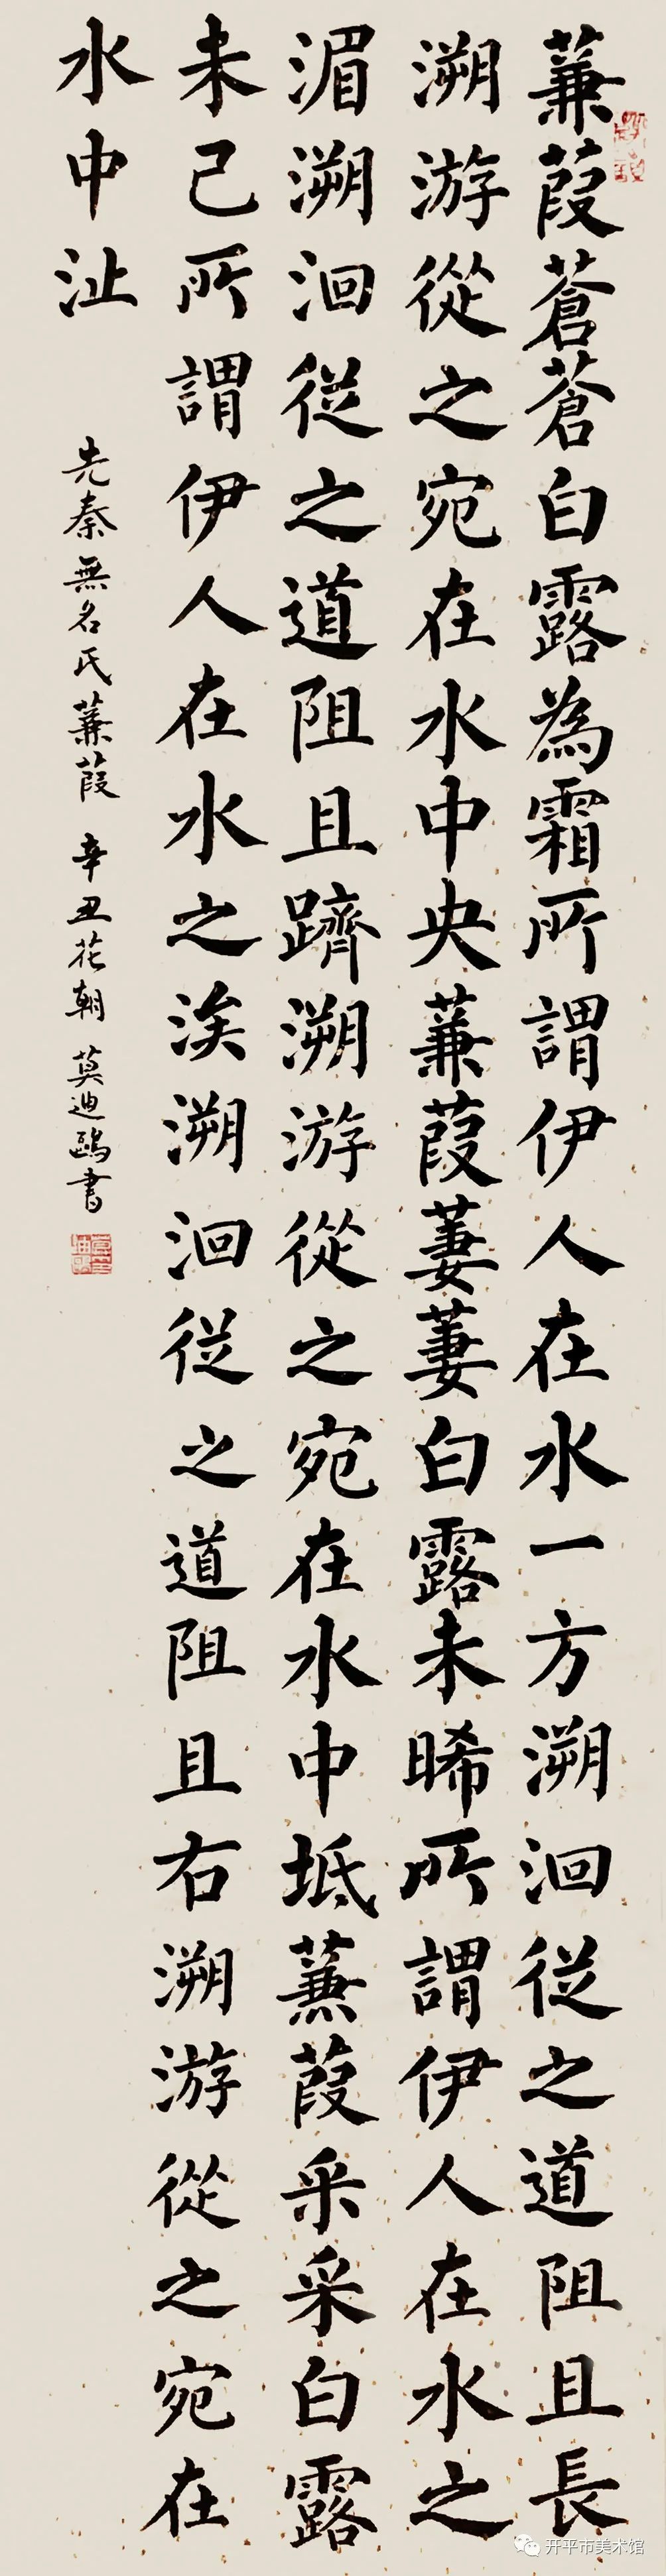 蒹葭蒼蒼白露為霜所謂伊人在水一方溯洄從之道阻且長
溯游從之宛在水中央蒹葭萋萋白露未晞所謂伊人在水之
湄溯洄從之道阻且躋溯游從之宛在水中坻蒹葭采采白露
未已所謂伊人在水之涘溯洄從之道阻且右溯游從之宛在
水中沚
先秦無名氏蒹葭 辛丑花朝 莫迪鷗書
开平市美术馆